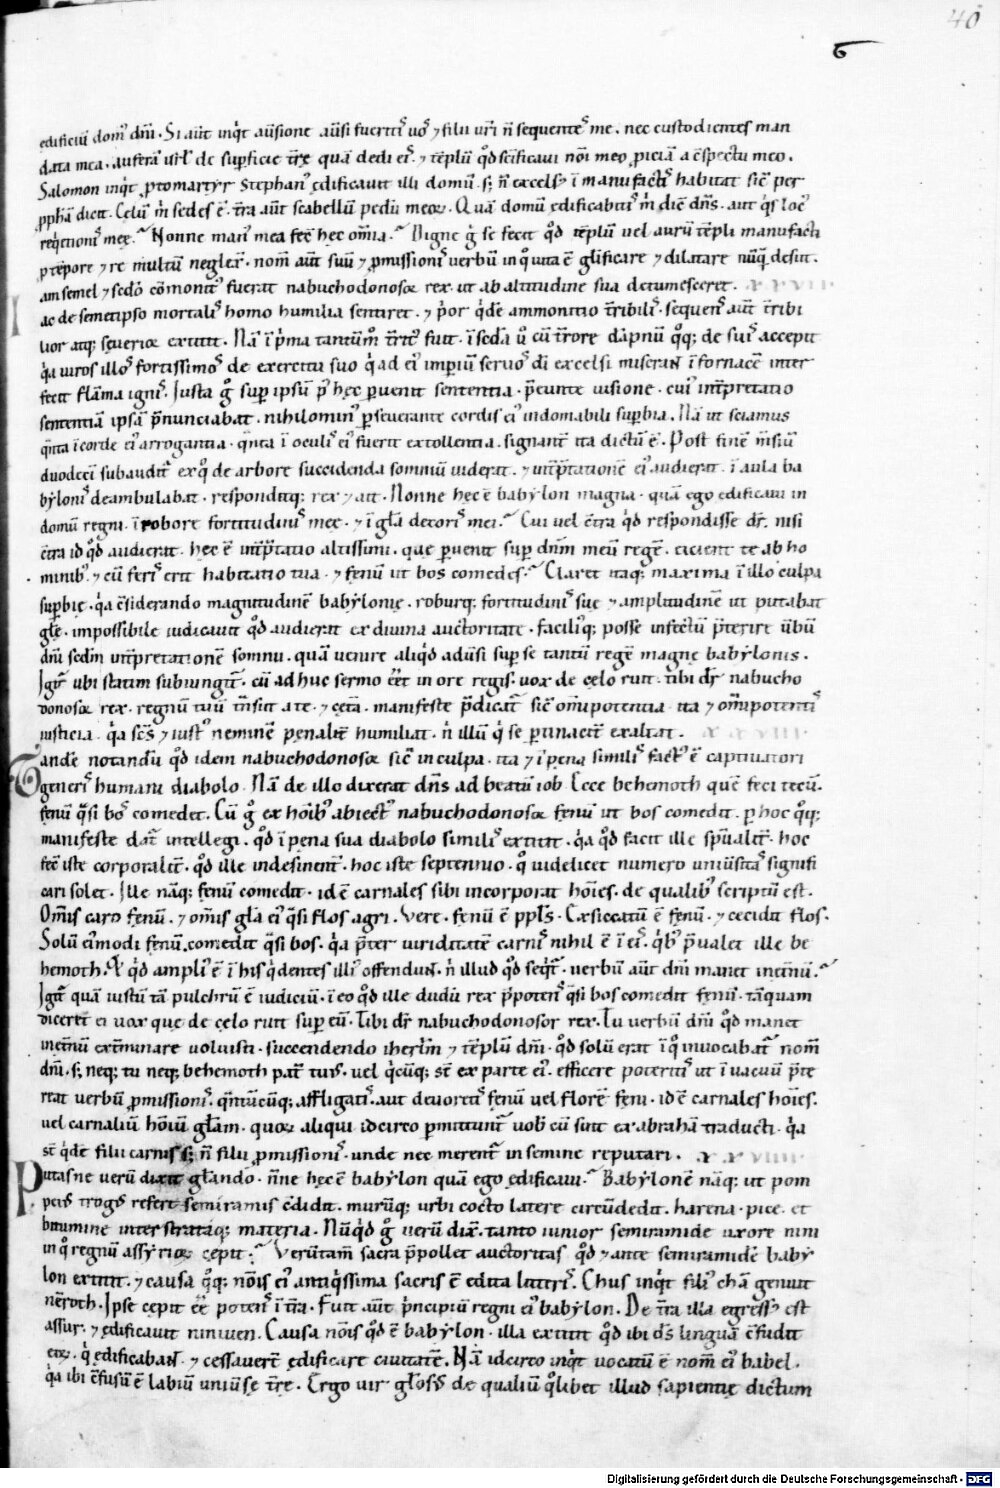 40
edificiū domꝰ dñi. Si aūt inqͥt aūsione aūsi fueritiˢ uoˢ ⁊ filii uri n̄ sequenteˢ me. nec custodientes man
data mea. auferā isrl̄ de sup̱ficie tr̄ę quā dedi eiˢ. ⁊ tēplū qͦd scīficaui noī meo ꝓiciā a c̄spectu meo.
Salomon inqͥt ꝓtomartyr stephanˢ ędificauit illi domū. sꝫ n̄ excelsˢ ī manufactiˢ habitat sic̄ per
ꝓph̄a dicit. Cęlū m̄ sedes ē. tr̄a aūt scabellū pedū meoꝝ. Quā domū ędificabitiˢ m̄ dic̄ dn̄s. aut qͥs locˢ
reqͥetioniˢ meę. Nonne manˢ mea fec̄ hec om̄ia. Digne g̊ se fecit qͦd tēplū uel aurū tēpli manufacti
ꝓ tēpore ⁊ re multū neglexͭ. nom̄ aūt suū ⁊ ꝓmissioniˢ uerbū in qͦ uita ē gl̄ificare ⁊ dilatare nūqͣ desiit.
am semel ⁊ scd̄o cōmonitˢ fuerat nabuchodonosor rex. ut ab altitudine sua detumesceret.
ac de semetipso mortaliˢ homo humilia sentiret. ⁊ pͥor qͥdē ammonitio tr̄ibiliˢ. sequenˢ aūt tr̄ibi
lior atqꝫ seuerior extitit. Nā ī pͥma tantum̄ tr̄itˢ fuit. ī scd̄a ů cū tr̄rore dāpnū qͦqꝫ de suiˢ accepit
qͥa uiros illoˢ fortissimoˢ de exercitu suo qͥ ad eiˢ imꝑiū seruoˢ dī excelsi miserant ī fornacē inter
fecit flāma igniˢ. Justa g̊ suꝑ ipsū pˢ hęc ꝑuenit sententia. p̄eunte uisione. cuiˢ int̄p̄retatio
sententiā ipsā p̄nunciabat. nihilominˢ ꝑseuerante cordis eiˢ indomabili suꝑbia. Nā ut sciamus
qͣnta ī corde eiˢ arrogantia. qͣnta ī oculiˢ eiˢ fuerit extollentia. signant̄ ita dictū ē. Post finē m̄siū
duodecī subauditͬ ex qͦ de arbore succidenda somniū uiderat. ⁊ int̄p̄tationē eiˢ audierat. ī aula ba
byloniˢ deambulabat. responditqꝫ rex ⁊ ait. Nonne hęc ē babylon magna. quā ego edificaui in
domū regni. ī robore fortitudiniˢ meę. ⁊ ī gl̄a decoriˢ mei. Cui uel c̄tra qͥd respondisse dr̄. nisi
c̄tra id qͦd audierat. hęc ē int̄p̄tatio altissimi. que ꝑuenit suꝑ dn̄m meū regē. eicient te ab ho
minibˢ. ⁊ cū feriˢ erit habitatio tua. ⁊ fenū ut bos comedes. Claret itaqꝫ maxima ī illo culpa
suꝑbię. qͥa c̄siderando magnitudinē babylonię. roburqꝫ fortitudiniˢ suę ⁊ amplitudinē ut putabat
gl̄ę. impossibile iudicauit qͦd audierat ex diuina auctoritate. faciliˢqꝫ posse infectū p̄terire ūbū
dn̄i scd̄m int̄pretationē somnii. quā uenire aliqͥd aduersi suꝑ se tantū regē magnę babylonis.
Igitͬ ubi statim subiungitͬ. cū ad huc sermo eēt in ore regis. uox de cęlo ruit. tibi dr̄ nabucho
donosor rex. regnū tuū tn̄siit a te. ⁊ cęta. manifeste p̄dicatͬ sic̄ om̄ipotentia ita ⁊ om̄ipotentiˢ
iusticia. qͥa sc̄s ⁊ iustˢ neminē penalit̄ humiliat. n̄ illū qͥ se ꝑtinacit̄ exaltat.
Tandē notandū qͦd idem nabuchodonosor sic̄ in culpa. ita ⁊ ī pena similiˢ factˢ ē captiuatori
generiˢ humani diabolo. Nā de illo dixerat dn̄s ad beatū iob. Ecce behemoth quē feci tecū.
fenū qͣsi boˢ comedet. Cū g̊ ex hoībˢ abiectˢ nabuchodonosor fenū ut bos comedit. ꝑ hoc qͦqꝫ
manifeste datͬ intellegi. qͦd ī pena sua diabolo similiˢ extitit. qͥa qͦd facit ille sp̄ualit̄. hoc
fec̄ iste corporalit̄. qͦd ille indesinent̄. hoc iste septennio. qͦ uidelicet numero uniūsitaˢ signifi
cari solet. Ille nāqꝫ fenū comedit. id ē carnales sibi incorporat hoīes. de qualibˢ scriptū est.
Om̄is caro fenū. ⁊ om̄is gl̄a eiˢ qͣsi flos agri. Vere. fenū ē ppl̄s. Exsiccatū ē fenū. ⁊ cecidit flos.
Solū eiˢmodi fenū comedit qͣsi bos. qͥa p̄ter uiriditatē carniˢ nihil ē ī eiˢ. qͥbˢ p̄ualet ille be
hemoth. Et qͥd ampliˢ ē ī his qͥ dentes illiˢ offendunt. n̄ illud qͦd seqͥtͬ. uerbū aūt dn̄i manet inet̄nū.
Igitͬ quā iustū tā pulchrū ē iudiciū. ī eo qͦd ille dudū rex p̄potenˢ qͣsi bos comedit fenū. tāquam
diceret̄ ei uox que de celo ruit suꝑ eū. Tibi dr̄ nabuchodonosor rex. Tu uerbū dn̄i qͦd manet
inet̄nū ext̄minare uoluisti. succendendo iherl̄m ⁊ tēplū dn̄i. qͦd solū erat ī qͦ inuocabatͬ nom̄
dn̄i. sꝫ neqꝫ tu neqꝫ behemoth pat̄ tuus. uel qͥcūqꝫ st̄ ex parte eiˢ. efficere poteritiˢ ut ī uacuū p̄te
reat uerbū ꝓmissioniˢ. qͣntūcūqꝫ affligatiˢ. aut deuoretiˢ fenū uel florē feni. id ē carnales hoīes.
uel carnaliū hoīū gl̄am. quoꝝ aliqui idcirco ꝑmittuntͬ uob̄ cū sint ex abrahā traducti. qͥa
st̄ qͥdē filii carnis sꝫ n̄ filii ꝓmissioniˢ. unde nec merentͬ in semine reputari.
Putasne uerū dixit gl̄ando. n̄ne hęc ē babylon quā ego ędificaui. Babylonē nāqꝫ ut pom
peiˢ trogˢ refert semiramis c̄didit. murūqꝫ urbi cocto latere circūdedit. harena. pice. et
bitumine interstrataqꝫ materia. Nūqͥd g̊ uerū dix̄. tanto iunior semiramide uxore nini
in qͦ regnū assyrioꝝ cępit. Verūtam̄ sacra p̄pollet auctoritas qͦd ⁊ ante semiramidē baby
lon extitit. ⁊ causa qͦqꝫ noīs eiˢ antiqͥssima sacris ē edita litt̄iˢ. Chus inqͥt filiˢ chā genuit
nēroth. Ipse cępit ēe potenˢ ī tr̄a. Fuit aūt pͥncipiū regni eiˢ babylon. De tr̄a illa egressˢ est
assur. ⁊ ędificauit niniuen. Causa noīs qͦd ē babylon. illa extitit qͦd ibi dˢ linguā c̄fudit
eoꝝ. qͥ ędificabant. ⁊ cessauer̄t ędificare ciuitatē. Nā idcirco inqͥt uocatū ē nom̄ eiˢ babel.
qͥa ibi c̄fusū ē labiū uniūsę tr̄ę. Ergo uir gl̄osˢ de qualiū qͦlibet illud sapientię dictum
Digitalisierung gefördert durch die Deutsche Forschungsgemeinschaft - DFG